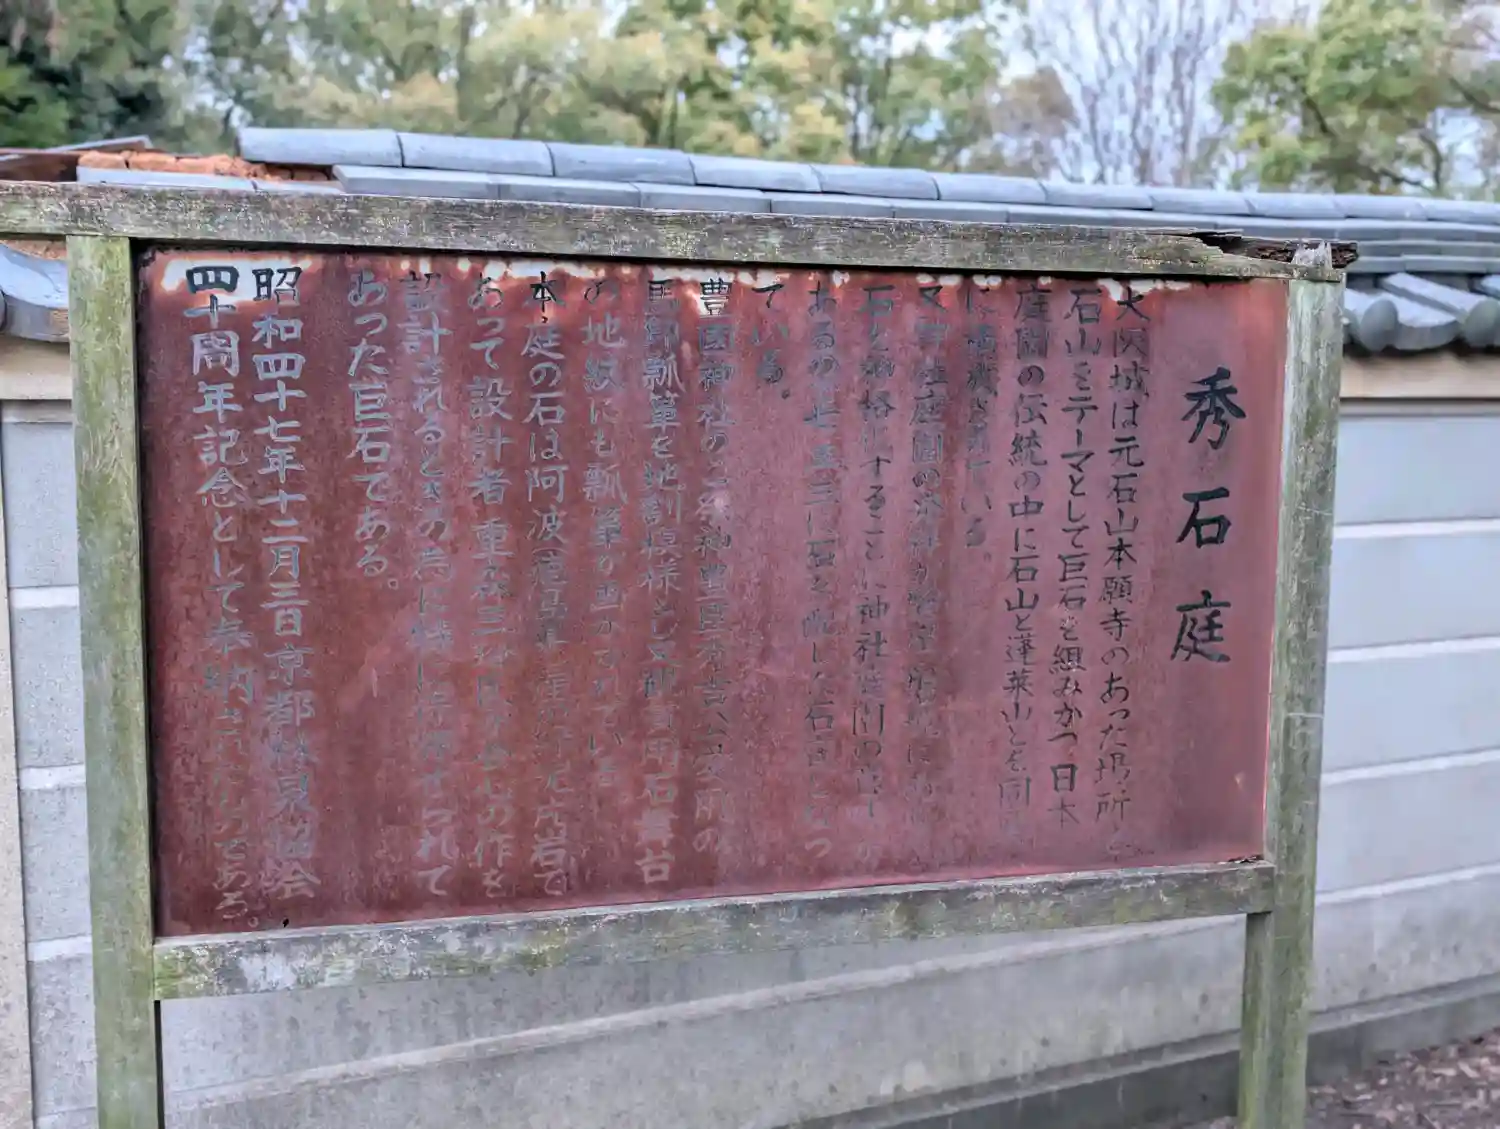 秀石庭
大阪城は元石山本願寺のあった場所と
石山をテーマとして巨石を組みかつ日本
庭園の伝統の中に石山と蓬莱山とを同
に構成されている。
又神社庭園の
石を 格にすることに神社庭園の
あるの 七五三に石を配した石 とな つ
ている。
豊國神社の 神豊臣秀吉公 の
馬印瓢箪を地割模様とし又 用石舞台
の地紋にも瓢箪が画かれている
本庭の石は阿波(徳島 岩で
あって設計者重森三玲氏が会心の作を
設計されるときの為に られて
あった巨石である。
昭和四十七年十二月三日京都林泉協会
四十周年記念として奉納されたものである。